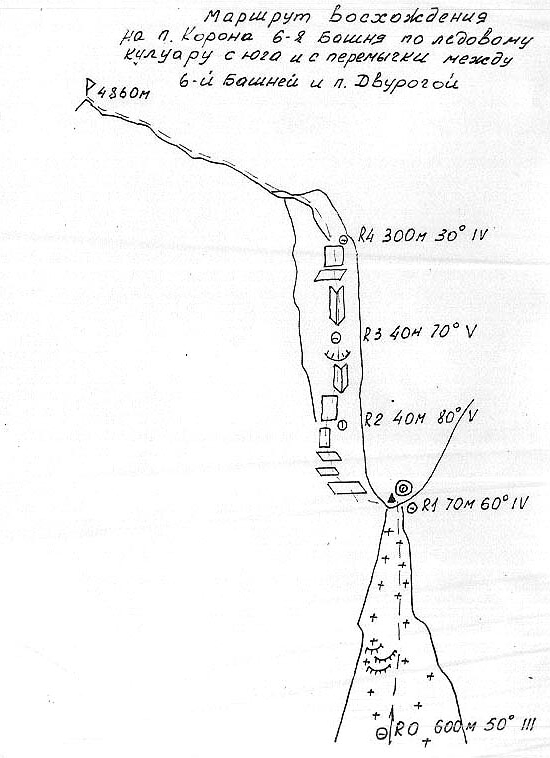 Маршрут Восхождения
на п. Корона 6-я Башня по ледовому
кулуару с юга и с перемычки между
6-й Башней и п. Двурогой
4860м
R4 300м 30° IV
R3 40м 70° V
R2 40м 80° V
R1 70м 60° IV
R0 600м 50° III